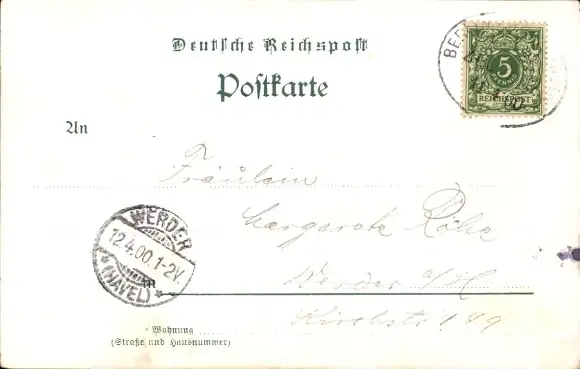 Deutsche Reichspost
Postkarte
BER
5
PFENNIG
REICHSPOST
An
Fräulein
Margarete Röhr
WERDER
12.4.00.1-2V.
* (HAVEL) *
in
Werder a/H
Kirchstr 149
Wohnung
(Straße und Hausnummer)